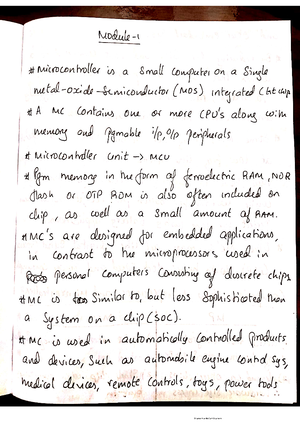 Module-1
# Microcontroller is a small computer on a single
metal-oxide-semiconductor (MOS) integrated Ckt chip
# A MC contains one or more CPU's along with
memory and Pgmable i/p, o/p Peripherals
# Microcontroller Unit → MCU
# Pgm memory in the form of ferroelectric RAM, NOR
flash or OTP ROM is also often included on
chip, as well as a small amount of RAM.
# MC's are designed for embedded applications,
in contrast to the microprocessors used in
personal computers consisting of discrete chips
# MC is similar to, but less sophisticated than
a System on a chip (SOC).
# MC is used in automatically controlled products
and devices, Such as automobile engine control sys,
medical devices, remote controls, toys, power tools